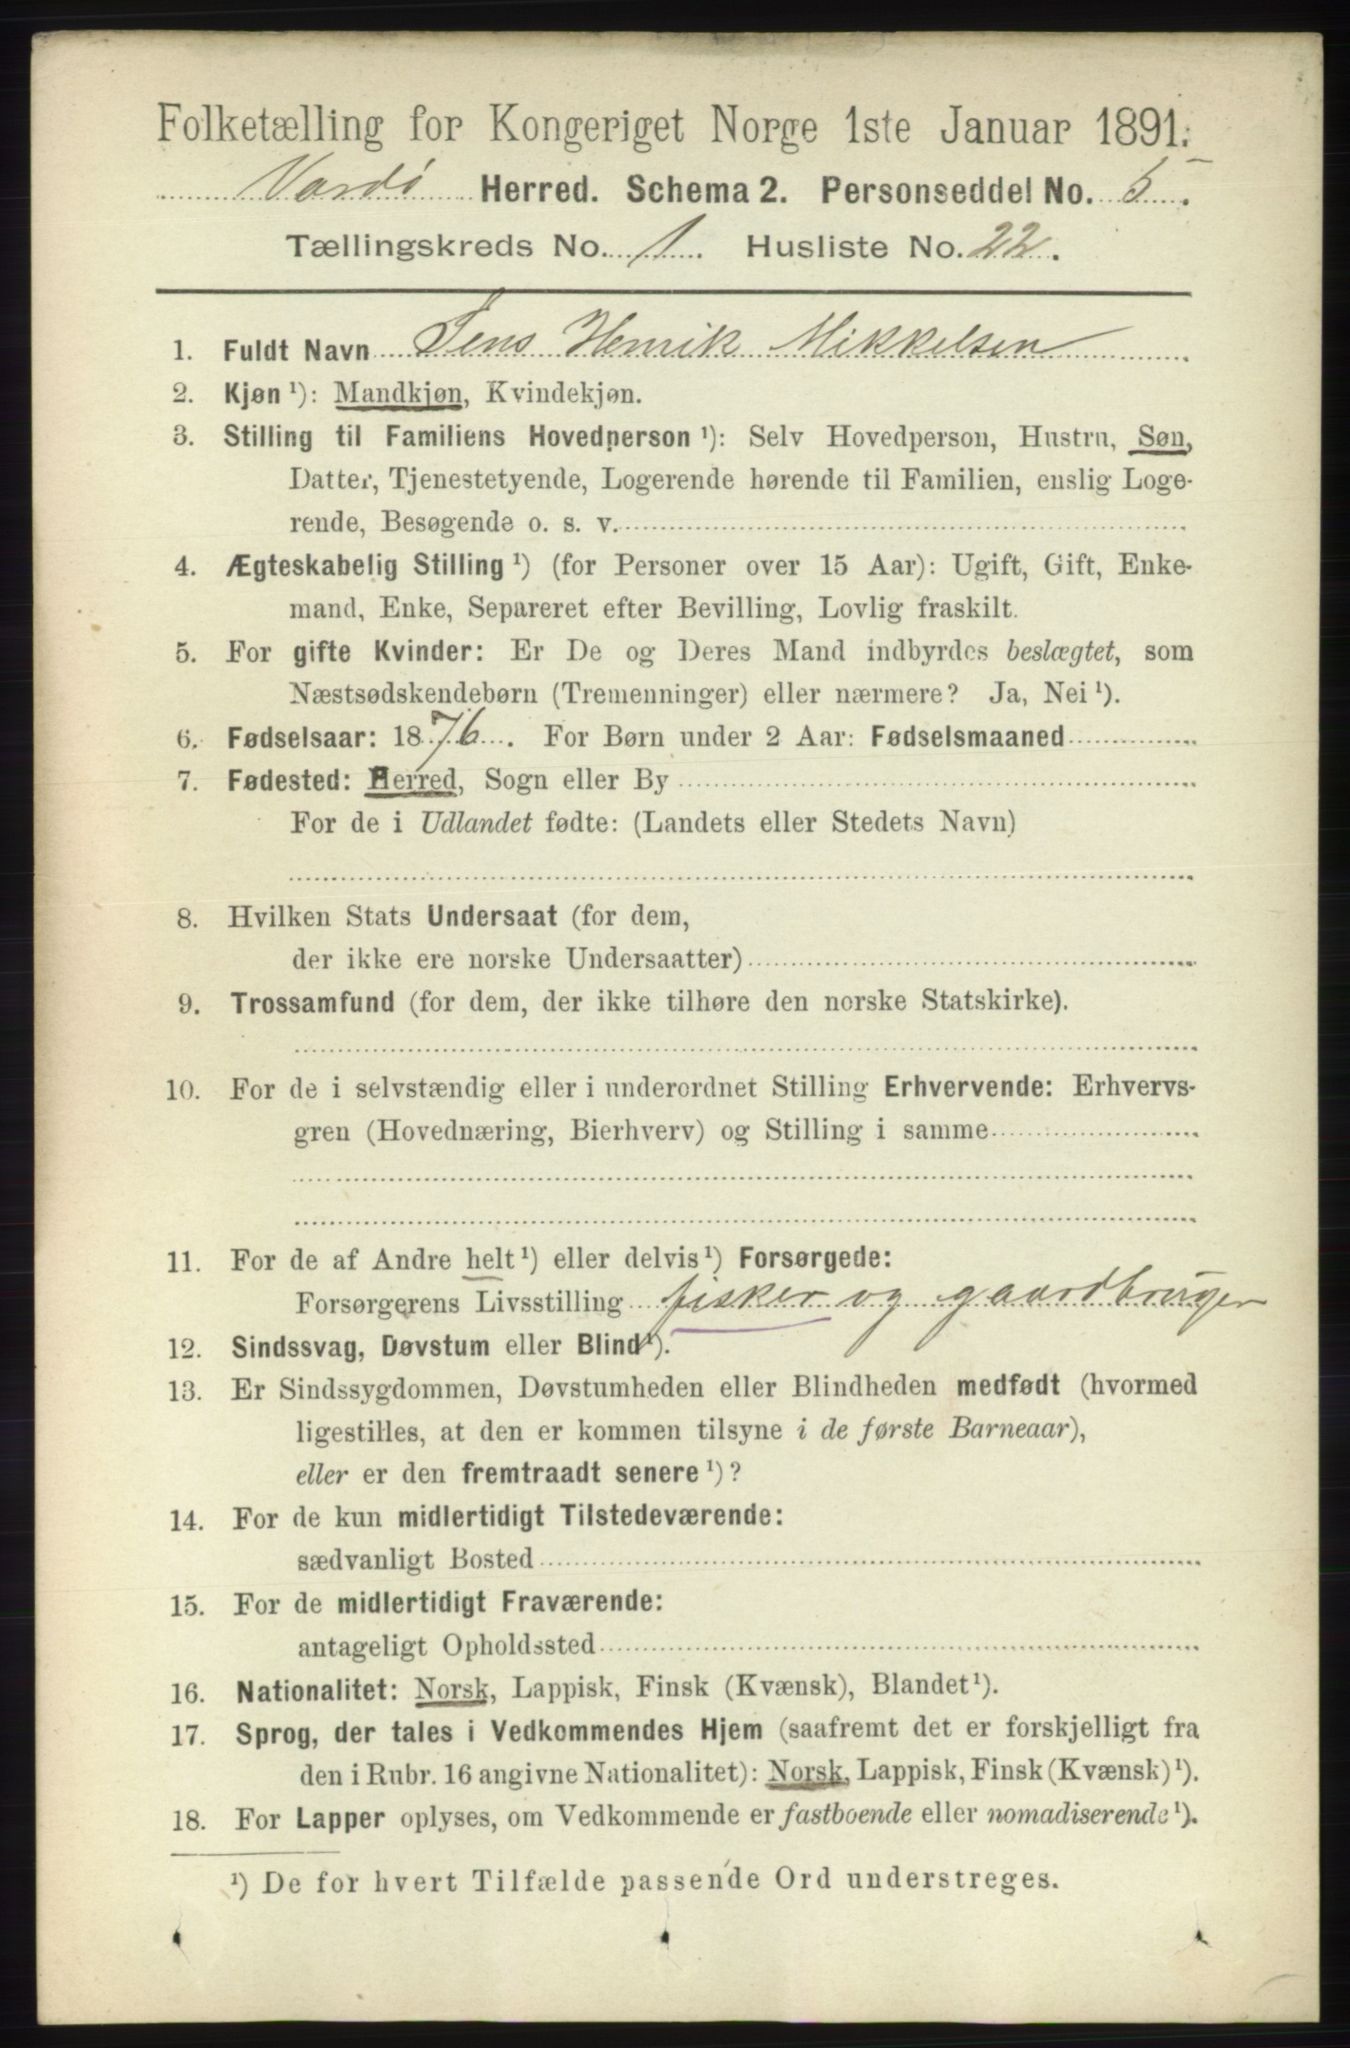 Folketælling for Kongeriget Norge 1ste Januar 1891.
Vardö Herred. Schema 2. Personseddel No. 5.
Tællingskreds No. 1. Husliste No. 22.
1. Fuldt Navn Jens Henrik Mikkelsen
2. Kjøn ¹): Mandkjøn, Kvindekjøn.
3. Stilling til Familiens Hovedperson ¹): Selv Hovedperson, Hustru, Søn,
Datter, Tjenestetyende, Logerende hørende til Familien, enslig Loge-
rende, Besøgende o. s. v.
4. Ægteskabelig Stilling ¹) (for Personer over 15 Aar): Ugift, Gift, Enke-
mand, Enke, Separeret efter Bevilling, Lovlig fraskilt.
5. For gifte Kvinder: Er De og Deres Mand indbyrdes beslægtet, som
Næstsødskendebørn (Tremenninger) eller nærmere? Ja, Nei ¹).
6. Fødselsaar: 1876. For Børn under 2 Aar: Fødselsmaaned
7. Fødested: Herred, Sogn eller By
For de i Udlandet fødte: (Landets eller Stedets Navn)
8. Hvilken Stats Undersaat (for dem,
der ikke ere norske Undersaatter)
9. Trossamfund (for dem, der ikke tilhøre den norske Statskirke).
10. For de i selvstændig eller i underordnet Stilling Erhvervende: Erhvervs-
gren (Hovednæring, Bierhverv) og Stilling i samme
11. For de af Andre helt ¹) eller delvis ¹) Forsørgede:
Forsørgerens Livsstilling fisker og gaardbruger
12. Sindssvag, Døvstum eller Blind ¹).
13. Er Sindssygdommen, Døvstumheden eller Blindheden medfødt (hvormed
ligestilles, at den er kommen tilsyne i de første Barneaar),
eller er den fremtraadt senere ¹)?
14. For de kun midlertidigt Tilstedeværende:
sædvanligt Bosted
15. For de midlertidigt Fraværende:
antageligt Opholdssted
16. Nationalitet: Norsk, Lappisk, Finsk (Kvænsk), Blandet ¹).
17. Sprog, der tales i Vedkommendes Hjem (saafremt det er forskjelligt fra
den i Rubr. 16 angivne Nationalitet): Norsk, Lappisk, Finsk (Kvænsk) ¹).
18. For Lapper oplyses, om Vedkommende er fastboende eller nomadiserende ¹).
¹) De for hvert Tilfælde passende Ord understreges.